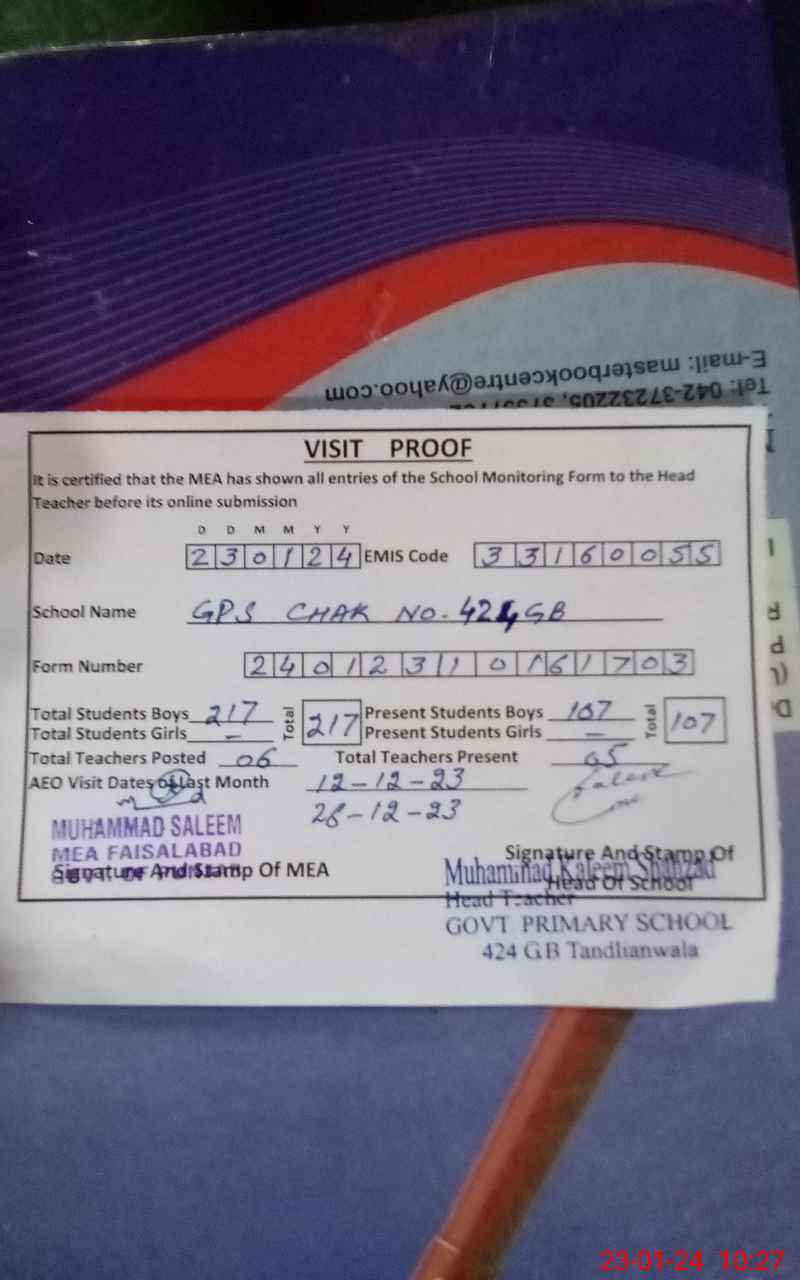 E-mail: masterbookcentre@yahoo.com
Tel: 042-37232205,
VISIT PROOF
It is certified that the MEA has shown all entries of the School Monitoring Form to the Head
Teacher before its online submission
D D M M Y Y
Date 230124 EMIS Code 33160055
School Name GPS CHAK NO. 424 GB
Form Number
Total Students Boys 217 Total 217 Present Students Boys 107 Total 107
Total Students Girls - Present Students Girls -
Total Teachers Posted 06 Total Teachers Present 05
AEO Visit Dates of Last Month 12-12-23
28-12-23
MUHAMMAD SALEEM
MEA FAISALABAD
Signature And Stamp Of MEA
Signature And Stamp Of
Head Of School
Muhammad Kaleem Shahzad
Head Teacher
GOVT PRIMARY SCHOOL
424 GB Tandlianwala
23-01-24 10:27